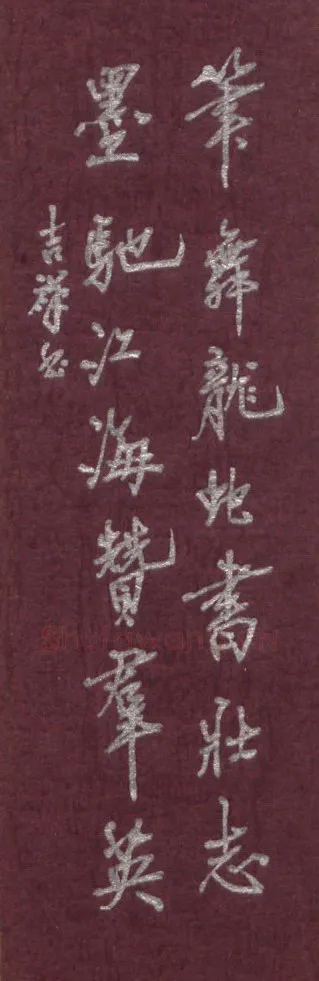 筆舞龍蛇書壯志
墨馳江海贊羣英
吉祥书